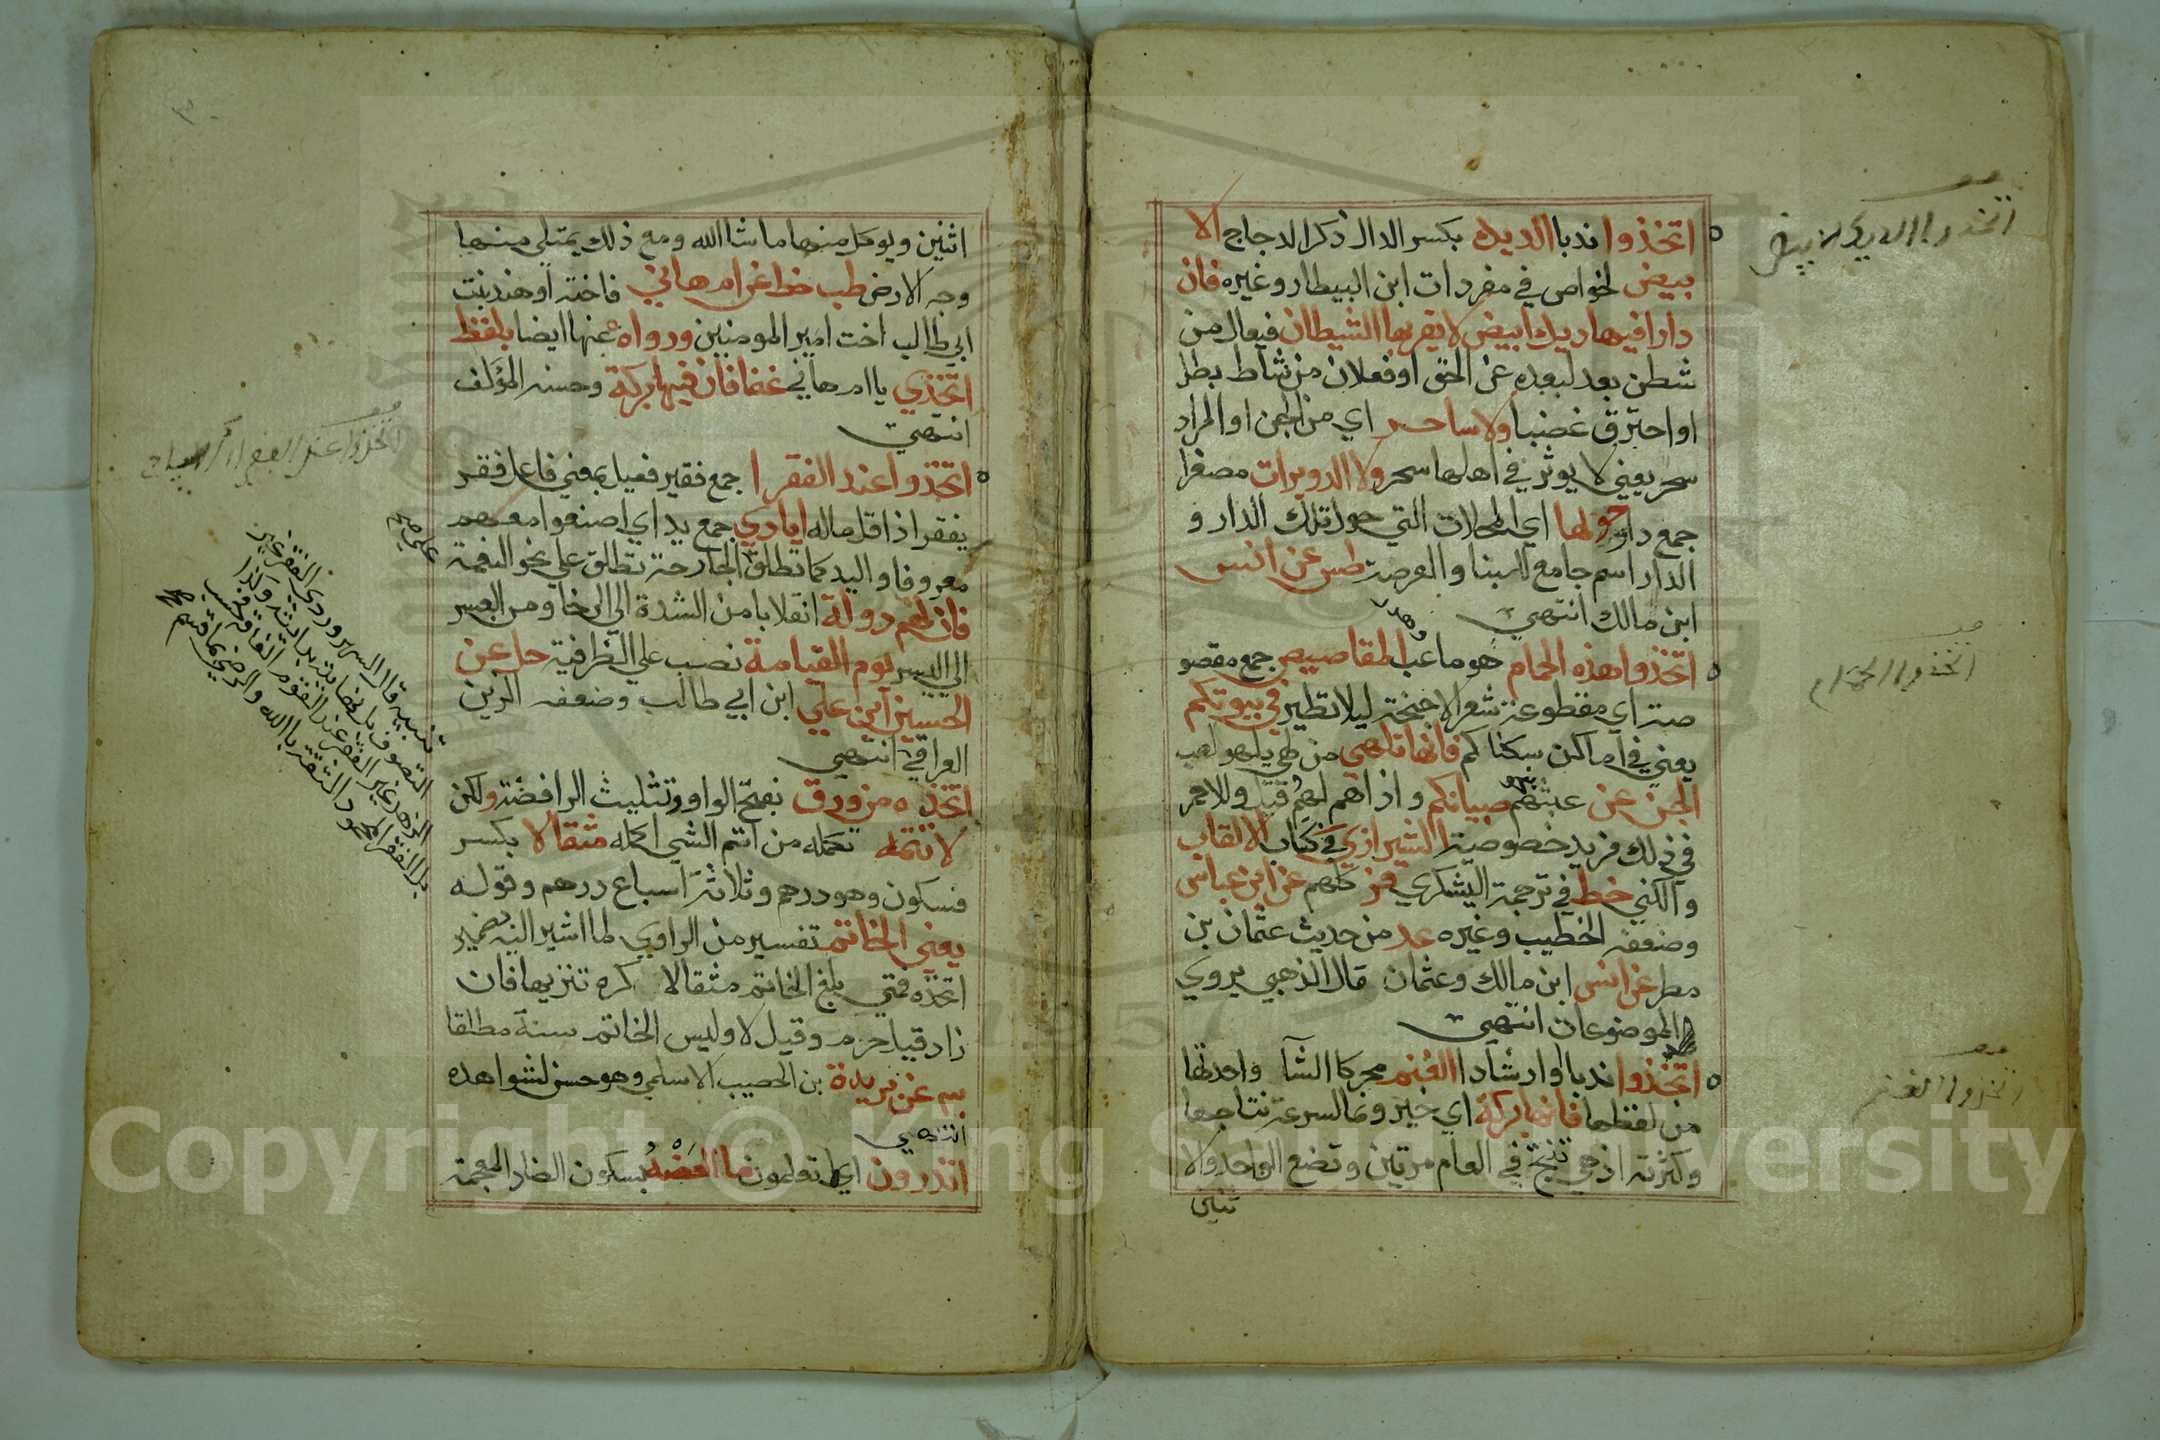 اتخذوا ندبا الديك بكسر الدال ذكر الدجاج الا
بيض لخواص في مفردات ابن البيطار وغيره فان
دارا فيها ديك ابيض لا يقربها الشيطان فيعال من
شطن بعد لبعده عن الحق او فعلان من شاط بطل
او احترق غضبا ولا ساحر اي من الجن او المراد
سحر يعني لا يوثر في اهلها سحر ولا الدويرات مصغرا
جمع دار حولها اي المحلات التي حول تلك الدار و
الدار اسم جامع للبنا والعرصة طس عن انس
ابن مالك انتهي
اتخذوا هذه الحمام هو ما عب وهدر المقاصيص جمع مقصو
صة اي مقطوعة شعر الاجنحة ليلا تطير في بيوتكم
يعني في اماكن سكناكم فانها تلهي من لهي يلهو لعب
الجن عن عبثهم بنحو صبيانكم واذاهم لهم قيل وللاحمر
في ذلك مزيد خصوصية الشيرازي في كتاب الالقاب
والكني خط في ترجمة اليشكري فر كلهم عن ابن عباس
وضعفه الخطيب وغيره عد من حديث عثمان بن
مطر عن انس ابن مالك وعثمان قال الذهبي يروي
الموضوعات انتهي
اتخذوا ندبا او ارشادا الغنم محركا الشآ واحدتها
من لفظها فانها بركة اي خير ونما لسرعة نتاجها
وكثرته اذ هي تنتج في العام مرتين وتضع الواحد والا
ثنين
اتخذوا الديك الابيض
اتخذوا الحمام
اتخذوا الغنم
اثنين ويوكل منها ما شا الله ومع ذلك يمتلي منها
وجه الارض طب خط عن ام هاني فاخته او هند بنت
ابي طالب اخت امير المومنين ورواه عنها ايضا بلفظ
اتخذي يا ام هاني غنما فان فيها بركة وحسنه المؤلف
انتهي
اتخذوا عند الفقرا جمع فقير فعيل بمعني فاعل فقر
يفقر اذا قل ماله ايادي جمع يد اي اصنعوا معهم
معروفا واليد كما تطلق علي الجارحة تطلق علي نحو النعمة
فان لهم دولة انقلابا من الشدة الي الرخا ومن العسر
الي اليسر يوم القيامة نصب علي الظرفية حل عن
الحسين ابن علي ابن ابي طالب وضعفه الزين
العراقي انتهي
اتخذه من ورق بفتح الواو وتثليث الرا فضة ولكن
لا تتمه تكمله من اتم الشي اكمله مثقالا بكسر
فسكون وهو درهم وثلاثة اسباع درهم وقوله
يعني الخاتم تفسير من الراوي لما اشير اليه بضمير
اتخذه فمتي بلغ الخاتم مثقالا كره تنزيها فان
زاد قيل حرم وقيل لا وليس الخاتم سنة مطلقا
عن بريدة بن الحصيب الاسلمي وهو حسن لشواهده
انتهي
اتدرون اي اتعلمون ما العضه بسكون الضاد المعجمة
اتخذوا عند الفقرا
علي صح
تنبيه قال السهروردي الفقر غير